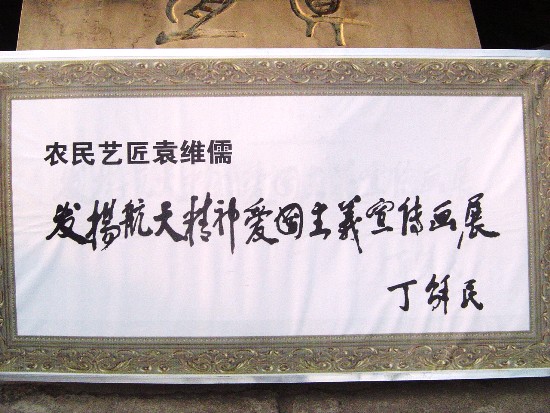 农民艺匠袁维儒
发揚航天精神愛国主義宣传画展
丁解民